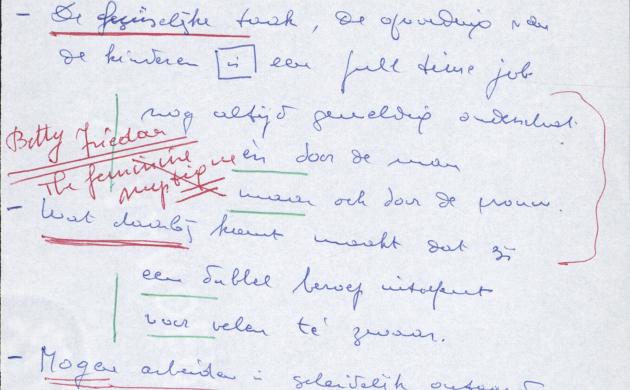 - De gezinselijke taak, de opvoeding van
de kinderen is een full time job
nog altijd geweldig onderschat.
Betty Friedan
èn door de man
The feminine mystique
maar och door de vrouw.
- Wat daarbij komt maakt dat zij
een dubbel beroep uitoefent
voor velen te zwaar.
- Mogen arbeiden is geleidelijk